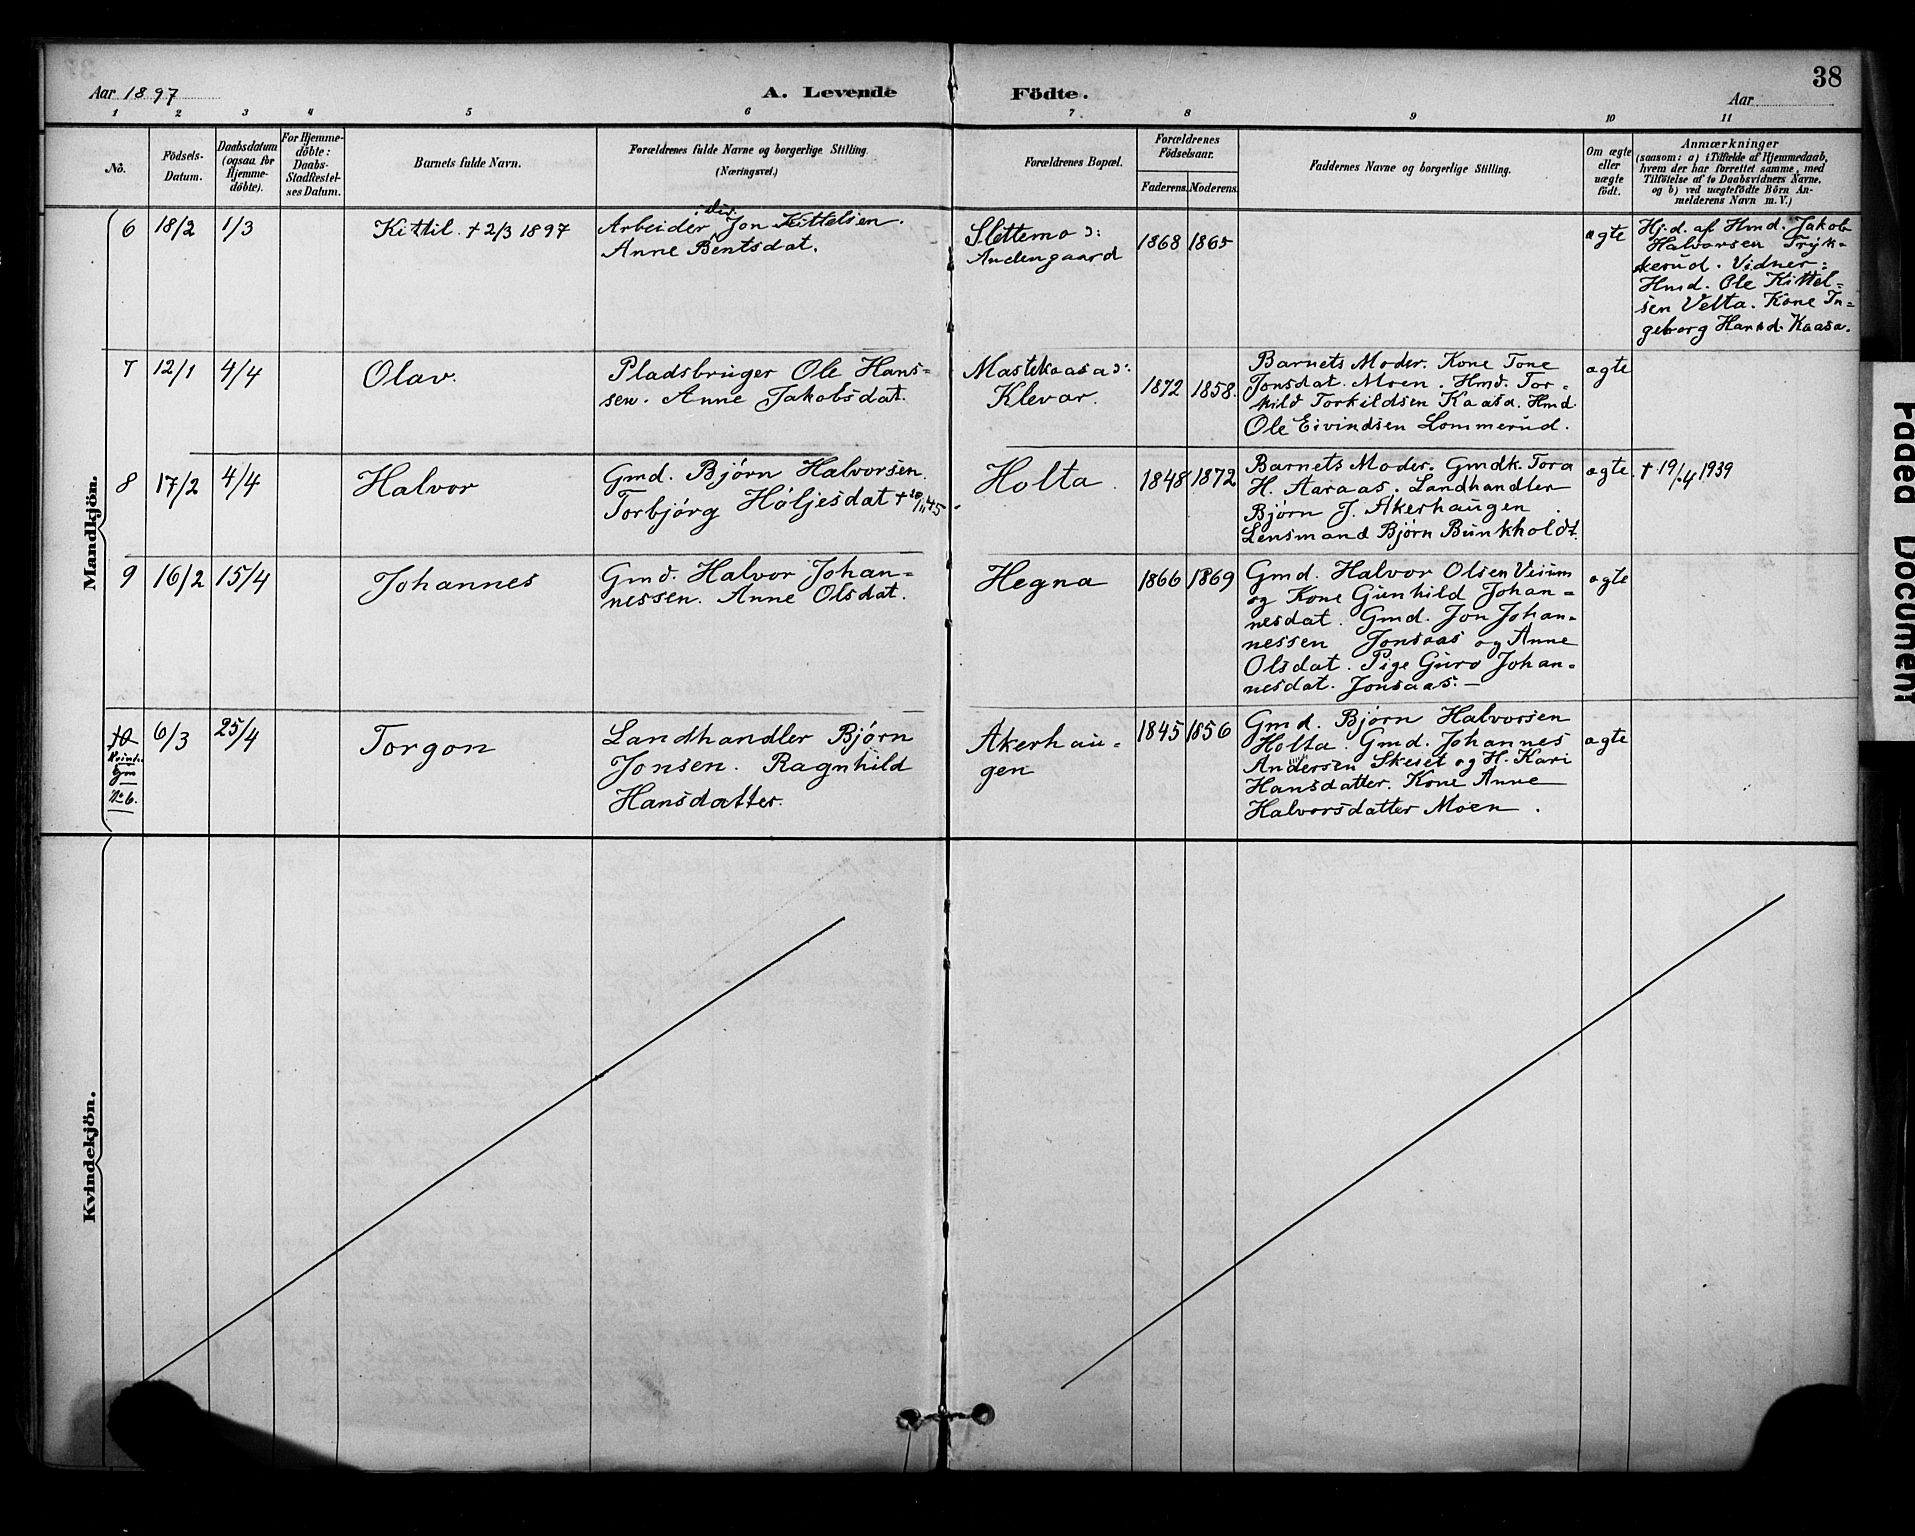 38
Aar 1897
A. Levende Födte.
Aar
1 2 3 4 5 6 7 8 9 10 11
No.
Födsels-Datum.
Daabsdatum (ogsaa for Hjemme-döbte).
For Hjemme-döbte: Daabs-Stadfæstel-ses Datum.
Barnets fulde Navn.
Forældrenes fulde Navne og borgerlige Stilling. (Næringsvei.)
Forældrenes Bopæl.
Forældrenes Födselsaar.
Faderens. Moderens.
Faddernes Navne og borgerlige Stilling.
Om ægte eller uægte födt.
Anmærkninger
(saasom: a) i Tilfælde af Hjemmedaab,
hvem der har forrettet samme, med
Tilföielse af to Daabsvidners Navne.
og b) ved uægtefödte Börn An-
melderens Navn m. V.)
Mandkjön.
6 18/2 1/3 Kittil. + 2/3 1897
Arbeider Jon Kittelsen.
Anne Bentsdat.
Slettemo ɔ:
Andengaard
1868 1865
ægte
Hj.d. af Hmd. Jakob
Halvorsen Tryk=
kerud. Vidner:
Hmd. Ole Kittel=
sen Velta. Kone In=
geborg Hansd. Kaasa.
7 12/1 4/4 Olav.
Pladsbruger Ole Hans=
sen. Anne Jakobsdat.
Mastekaasa ɔ:
Klevar.
1872 1858.
Barnets Moder. Kone Tone
Jonsdat. Moen. Hmd. Tor=
kild Torkildsen Kaasa. Hmd.
Ole Eivindsen Lommerud.
ægte
8 17/2 4/4 Halvor
Gmd. Bjørn Halvorsen.
Torbjørg Høljesdat +
Holta.
1848 1872
Barnets Moder. Gmdk. Tora
H. Aaraas. Landhandler
Bjørn J. Akerhaugen.
Lensmand Bjørn Bunkholdt.
ægte.
+ 19/4 1939
9 16/2 15/4 Johannes
Gmd. Halvor Johan=
nessen. Anne Olsdat.
Hegna
1866 1869
Gmd. Halvor Olsen Vesum
og Kone Gunhild Johan=
nesdat. Gmd. Jon Johan=
nessen Jonsaas og Anne
Olsdat. Pige Guro Johan=
nesdat. Jonsaas.
ægte
10
No 6.
6/3 25/4 Torgon
Landhandler Bjørn
Jonsen. Ragnhild
Hansdatter.
Akerhau=
gen
1845 1856
Gmd. Bjørn Halvorsen
Holta. Gmd. Johannes
Andersen Skeiet og H. Kari
Hansdatter. Kone Anne
Halvorsdatter Moen.
ægte
Kvindekjön.
Document